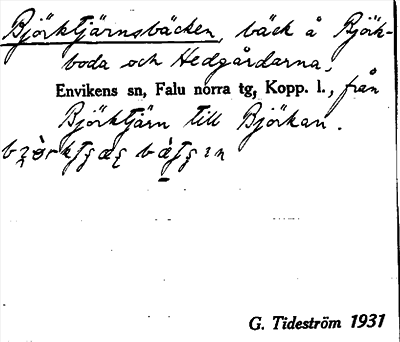 Björktjärnsbäcken, bäck å Björk-
boda och Hedgårdarna,
Envikens sn, Falu norra tg, Kopp. l., från
Björktjärn till Björkan.
G. Tideström 1931